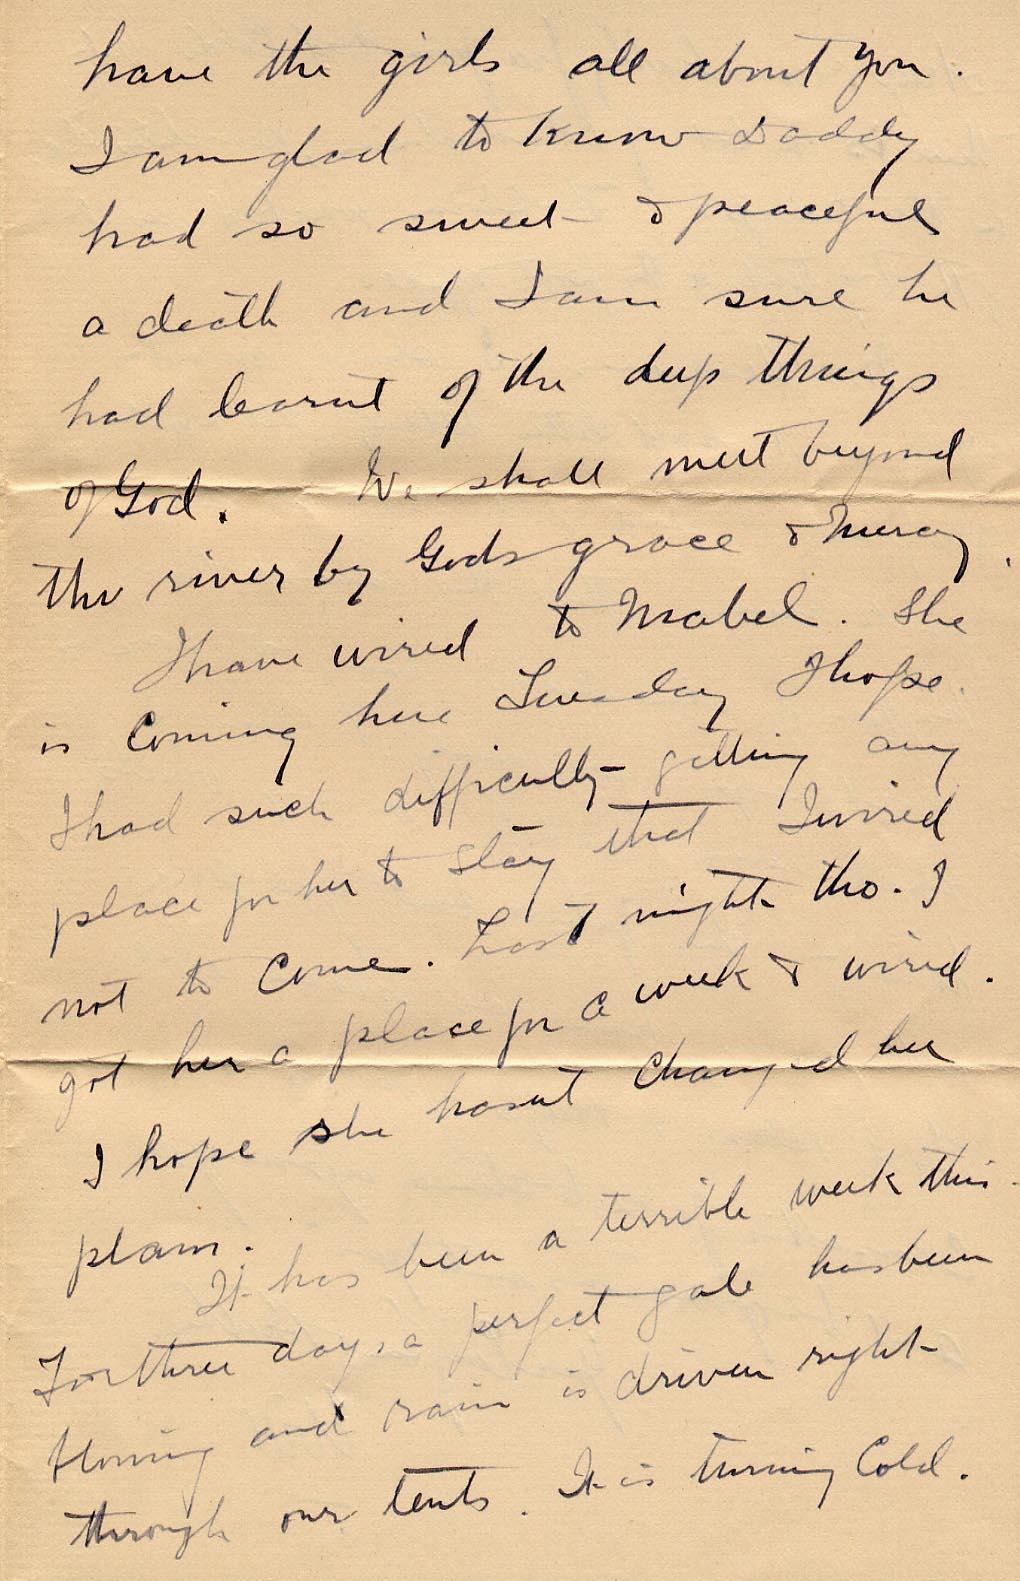 have the girls all about you.
I am glad to know Daddy
had so sweet & peaceful
a death and I am sure he
had learnt of the deep things
of God. We shall meet beyond
the river by Gods grace & mercy.
I have wired to Mabel. She
is coming here Tuesday I hope.
I had such difficulty getting any
place for her to stay that I wired
not to come. Last night tho. I
got her a place for a week & wired.
I hope she hasnt changed her
plans.
It has been a terrible week this.
For three days a perfect gale has been
blowing and rain is driven right
through our tents. It is turning cold.